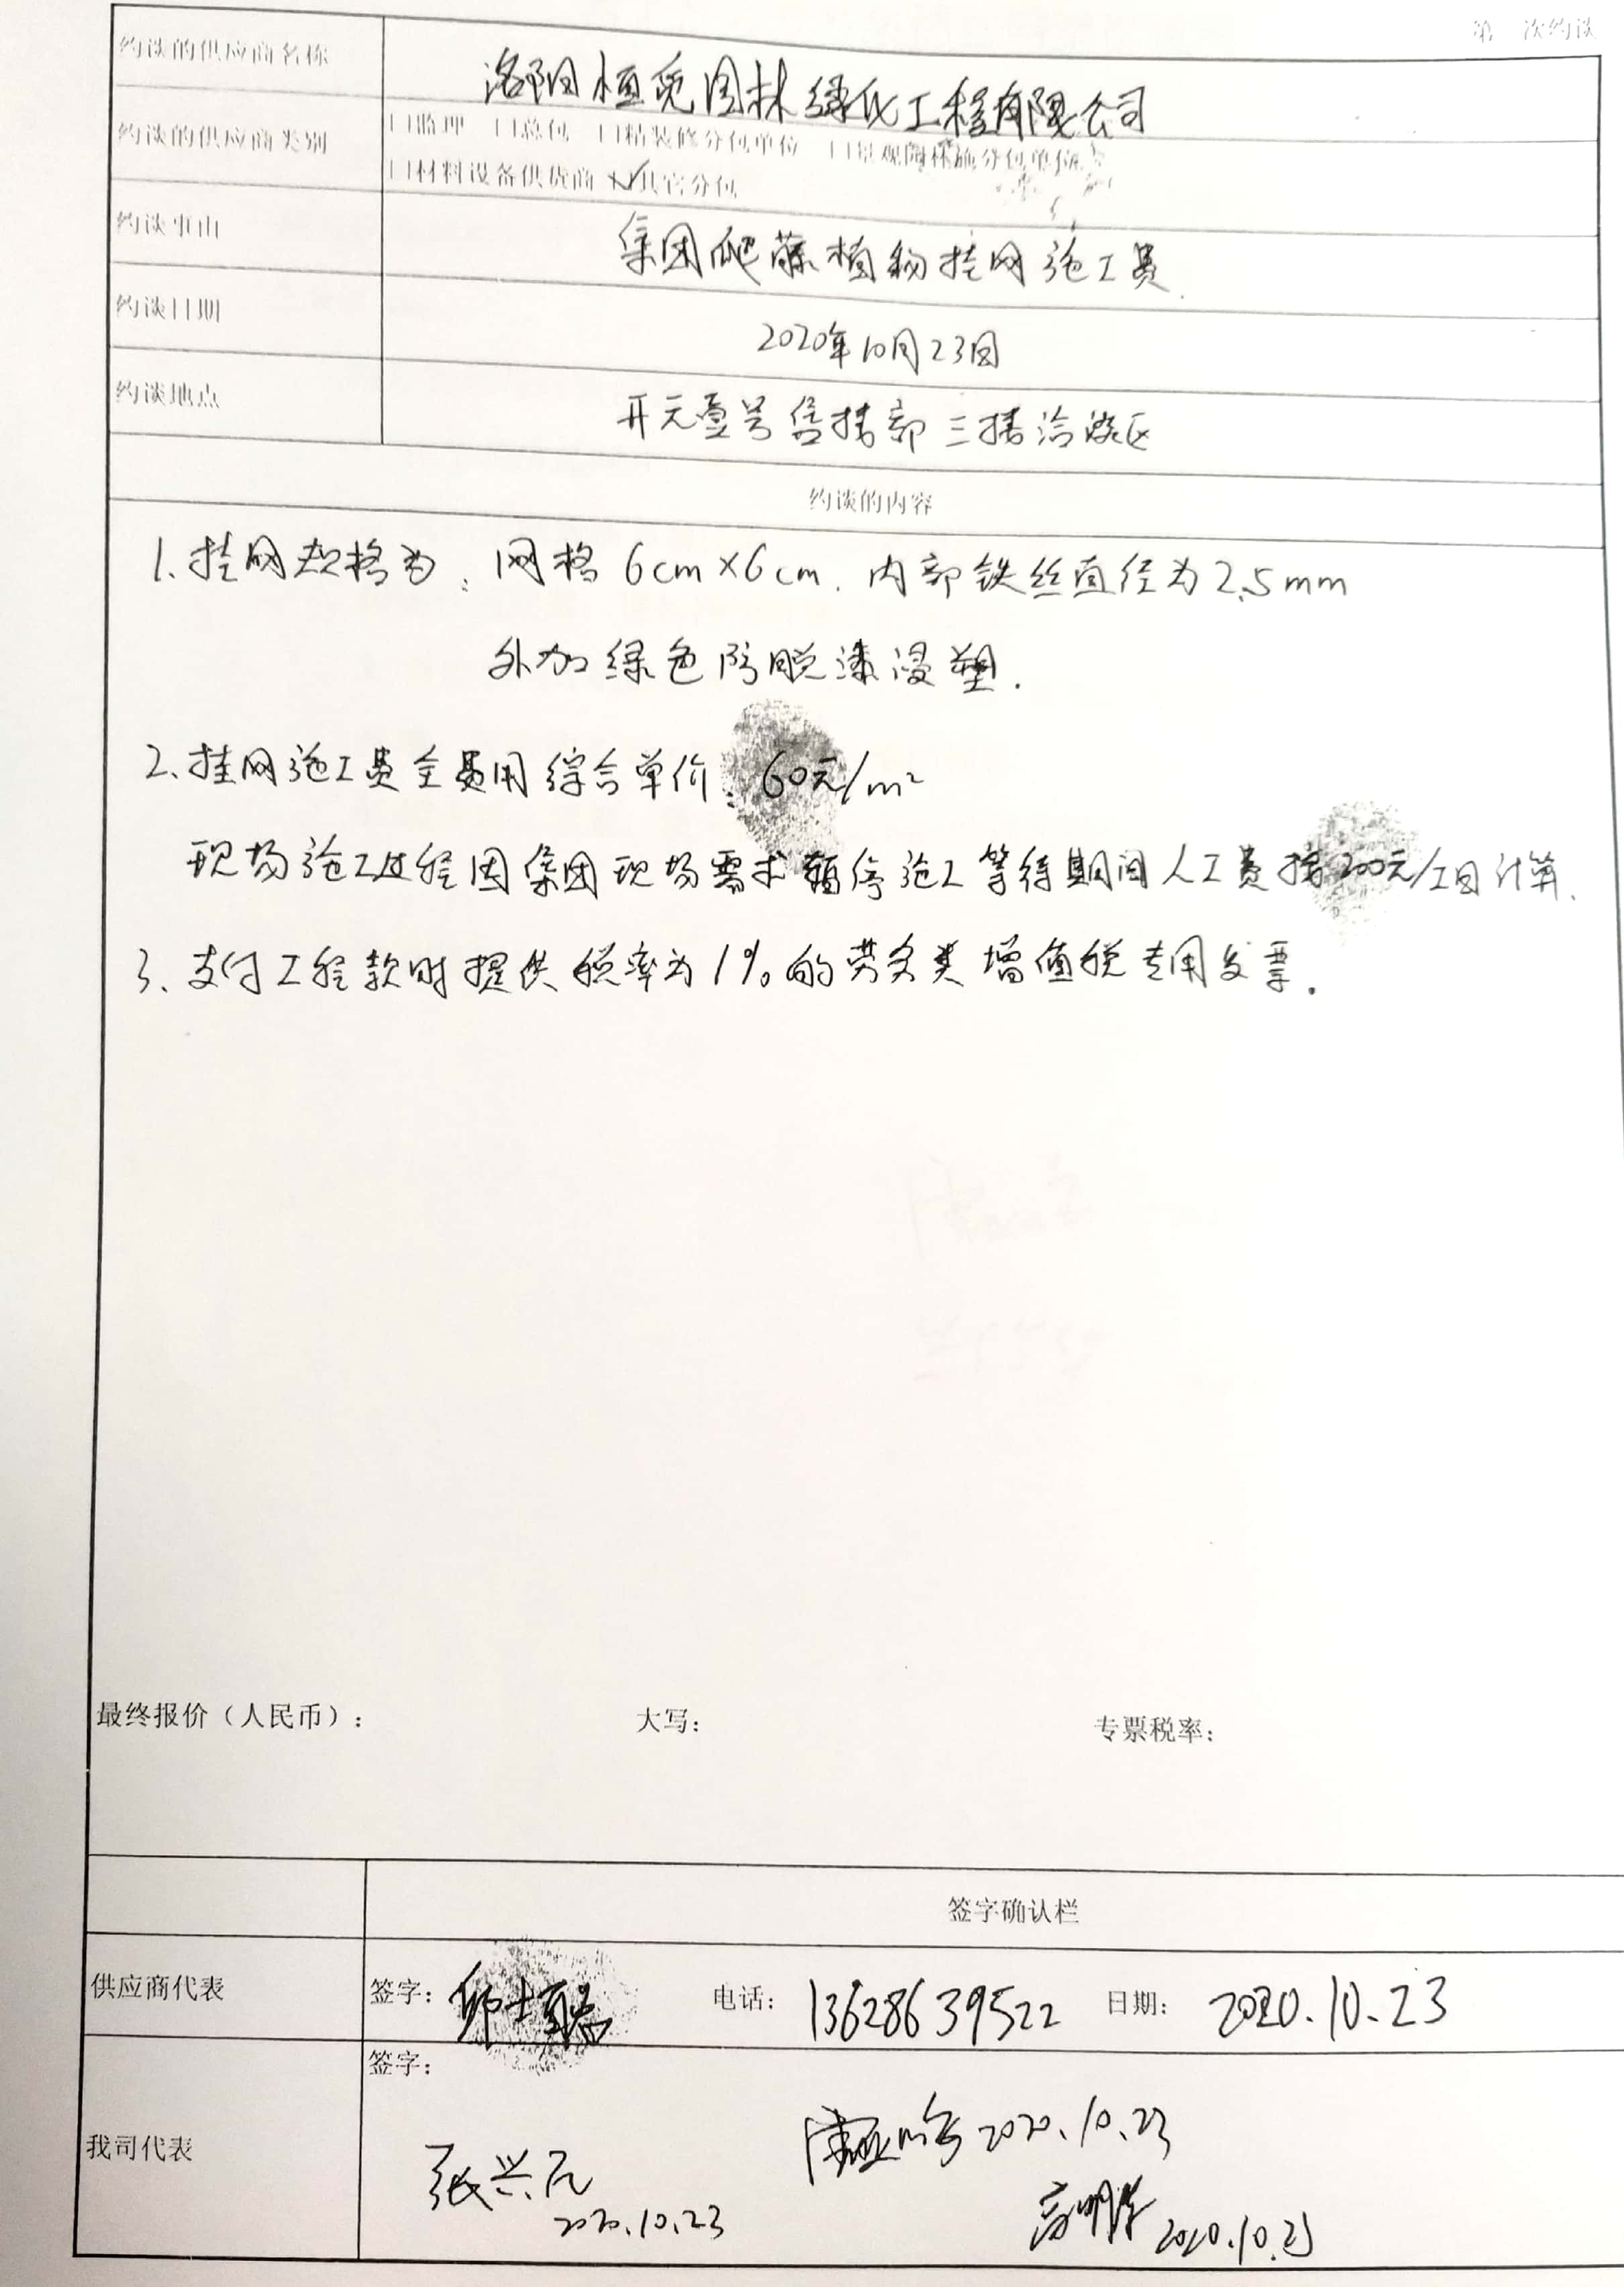 第 次约谈
约谈的供应商名称 洛阳恒觅园林绿化工程有限公司
约谈的供应商类别 口监理 口总包 口精装修分包单位 口景观园林施分包单位
口材料设备供货商 其它分包
约谈事由 集团爬藤植物挂网施工费
约谈日期 2020年10月23日
约谈地点 开元壹号售楼部三楼洽谈区
约谈的内容
1、挂网规格为：网格6cm×6cm．内部铁丝直径为2.5mm
外加绿色防脱漆浸塑．
2、挂网施工费全费用综合单价：60元/m²
现场施工过程因集团现场需求暂停施工等待期间人工费按200元/工日计算．
3、支付工程款时提供税率为1%的劳务类增值税专用发票．
最终报价（人民币）： 大写： 专票税率：
签字确认栏
供应商代表 签字： 电话：13628639522 日期：2020.10.23
签字：
2020.10.23
我司代表 张兴元
2020.10.23
2020.10.23